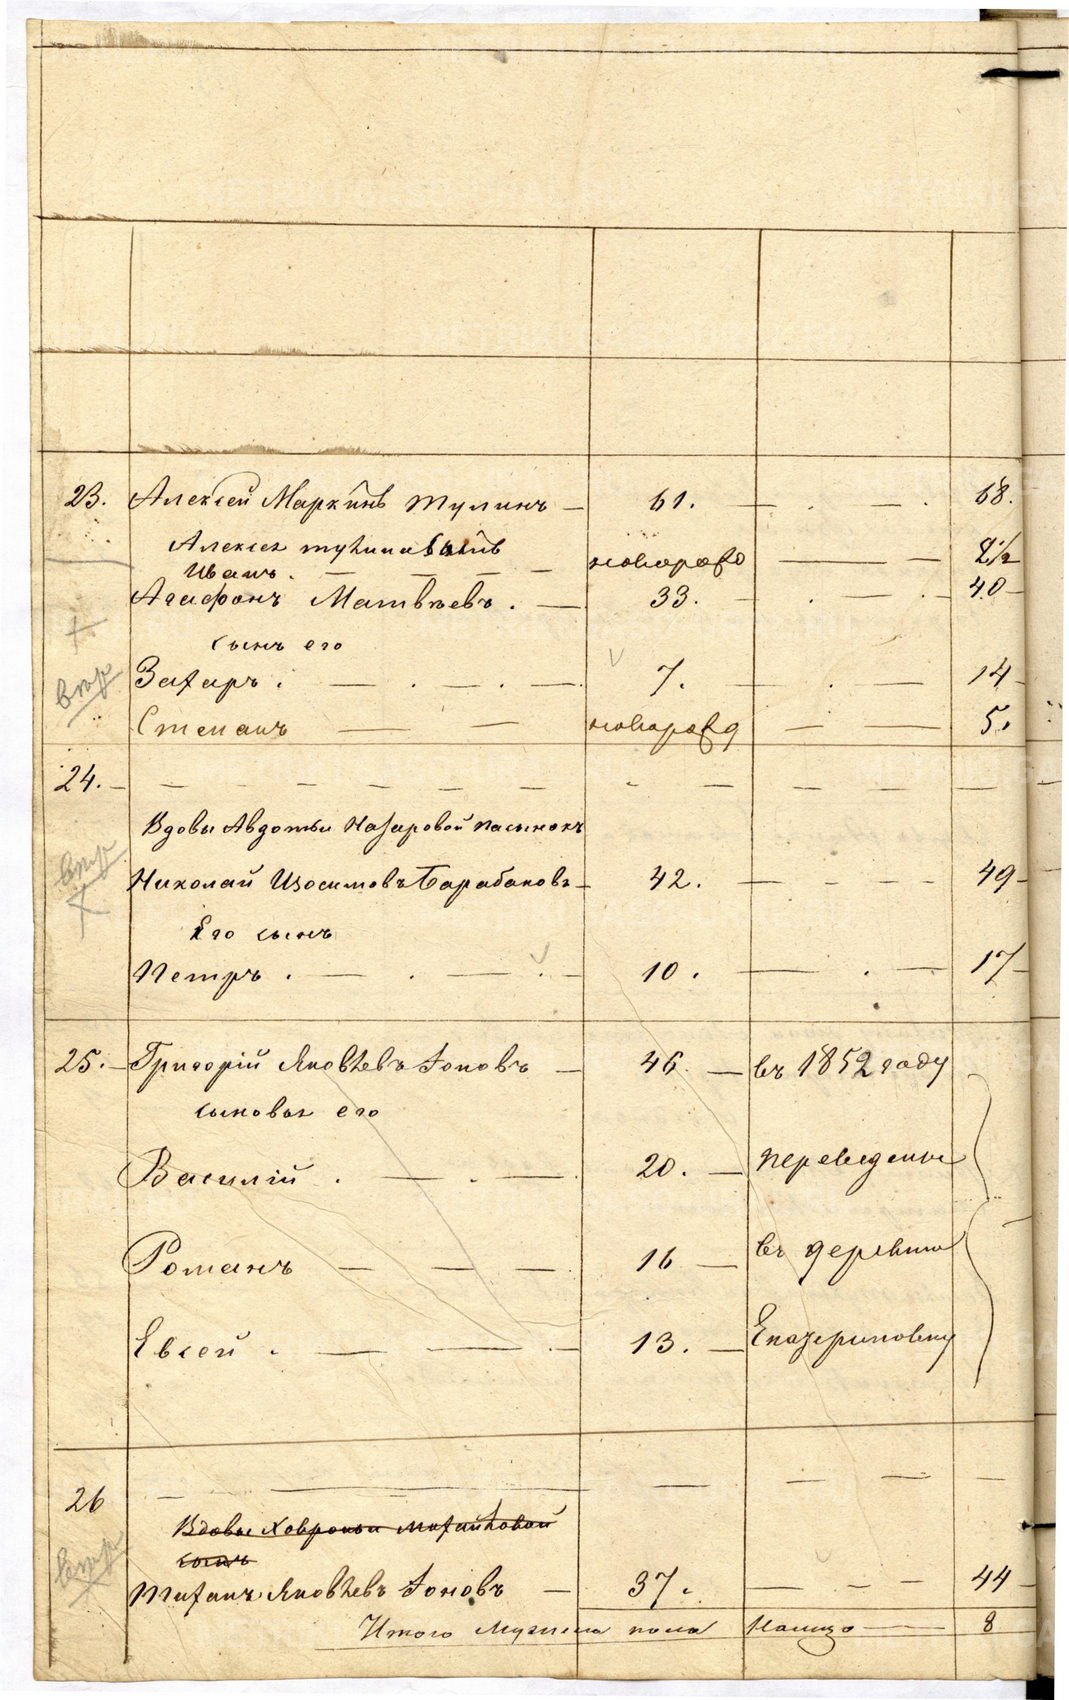 23. Алексей Маркинъ Тулинъ — 61. — . — . 68.
Алексея Тулина сынъ
Иванъ. — — — — новорожд — — 2½
Агафонъ Матвѣевъ. — 33. — . — . 40
сынъ его
Захаръ. — . — . — . 7. — . — 14
Степанъ — — новорожд — — 5.
24. — — — — — — — — — — — —
Вдовы Авдотьи Назаровой пасынокъ
Николай Изосимовъ Барабановъ — 42. — — — — 49
Его сынъ
Петръ. — . — . — 10. — . — 17
25. — Григорій Яковлевъ Іоновъ — 46. — въ 1852 году
сыновья его
Василій . — . — . 20. — переведены
Романъ — — — 16 — въ деревню
Евсей . — — . — 13. — Екатериновку
26 — — — — — —
Вдовы Хавроньи Михайловой
сынъ
Тиханъ Яковлевъ Іоновъ — 37. — — — 44
Итого мужеска пола налицо — 8